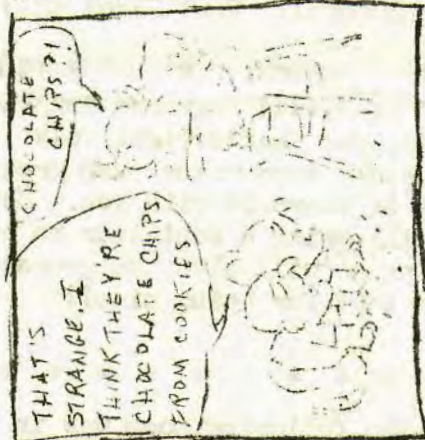 THAT'S
STRANGE. I
THINK THEY'RE
CHOCOLATE CHIPS
FROM COOKIES
CHOCOLATE
CHIPS?!